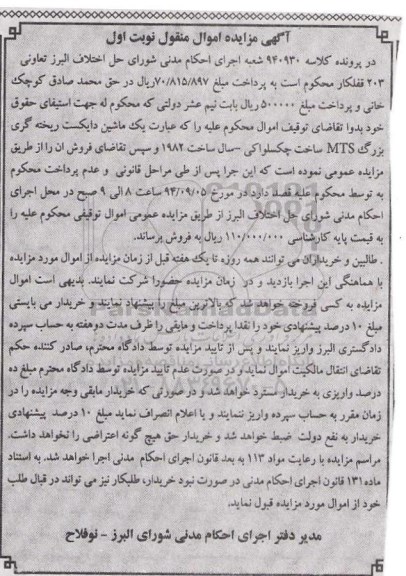 آگهی مزایده اموال منقول نوبت اول
در پرونده کلاسه ۹۴۰۹۳۰ شعبه اجرای احکام مدنی شورای حل اختلاف البرز تعاونی
۲۰۳ قفلکار محکوم است به پرداخت مبلغ ۷۰/۸۱۵/۸۹۷ریال در حق محمد صادق کوچک
خانی و پرداخت مبلغ ۵۰۰۰۰۰ ریال بابت نیم عشر دولتی که محکوم له جهت استیفای حقوق
خود بدوا تقاضای توقیف اموال محکوم علیه را که عبارت یک ماشین دایکست ریخته گری
بزرگ MTS ساخت چکسلواکی –سال ساخت ۱۹۸۲ و سپس تقاضای فروش ان را از طریق
مزایده عمومی نموده است که این جرا پس از طی مراحل قانونی و عدم پرداخت محکوم
به توسط محکوم علیه قصد دارد در مورخ ۹۴/۰۹/۰۵ ساعت ۸ الی ۹ صبح در محل اجرای
احکام مدنی شورای حل اختلاف البرز از طریق مزایده عمومی اموال توقیفی محکوم علیه را
به قیمت پایه کارشناسی ۱۱۰/۰۰۰/۰۰۰ ریال به فروش برساند.
. طالبین و خریداران می توانند همه روزه تا یک هفته قبل از زمان مزایده از اموال مورد مزایده
با هماهنگی این اجرا بازدید و در زمان مزایده حضورا شرکت نمایند. بدیهی است اموال
مزایده به کسی فروخته خواهد شد که بالاترین مبلغ را پیشنهاد نمایند و خریدار می بایستی
مبلغ ۱۰ درصد پیشنهادی خود را نقدا پرداخت و مابقی را ظرف مدت دوهفته به حساب سپرده
دادگستری البرز واریز نمایند و پس از تایید مزایده توسط دادگاه محترم، صادر کننده حکم
تقاضای انتقال مالکیت اموال نماید و در صورت عدم تایید مزایده توسط دادگاه محترم مبلغ ده
درصد واریزی به خریدار مسترد خواهد شد و در صورتی که خریدار مابقی وجه مزایده را در
زمان مقرر به حساب سپرده واریز ننمایند و یا اعلام انصراف نماید مبلغ ۱۰ درصد پیشنهادی
خریدار به نفع دولت ضبط خواهد شد و خریدار حق هیچ گونه اعتراضی را نخواهد داشت.
مراسم مزایده با رعایت مواد ۱۱۳ به بعد قانون اجرای احکام مدنی اجرا خواهد شد. به استناد
ماده ۱۳۱ قانون اجرای احکام مدنی در صورت نبود خریدار، طلبکار نیز می تواند در قبال طلب
خود از اموال مورد مزایده قبول نماید.
مدیر دفتر اجرای احکام مدنی شورای البرز - نوفلاح